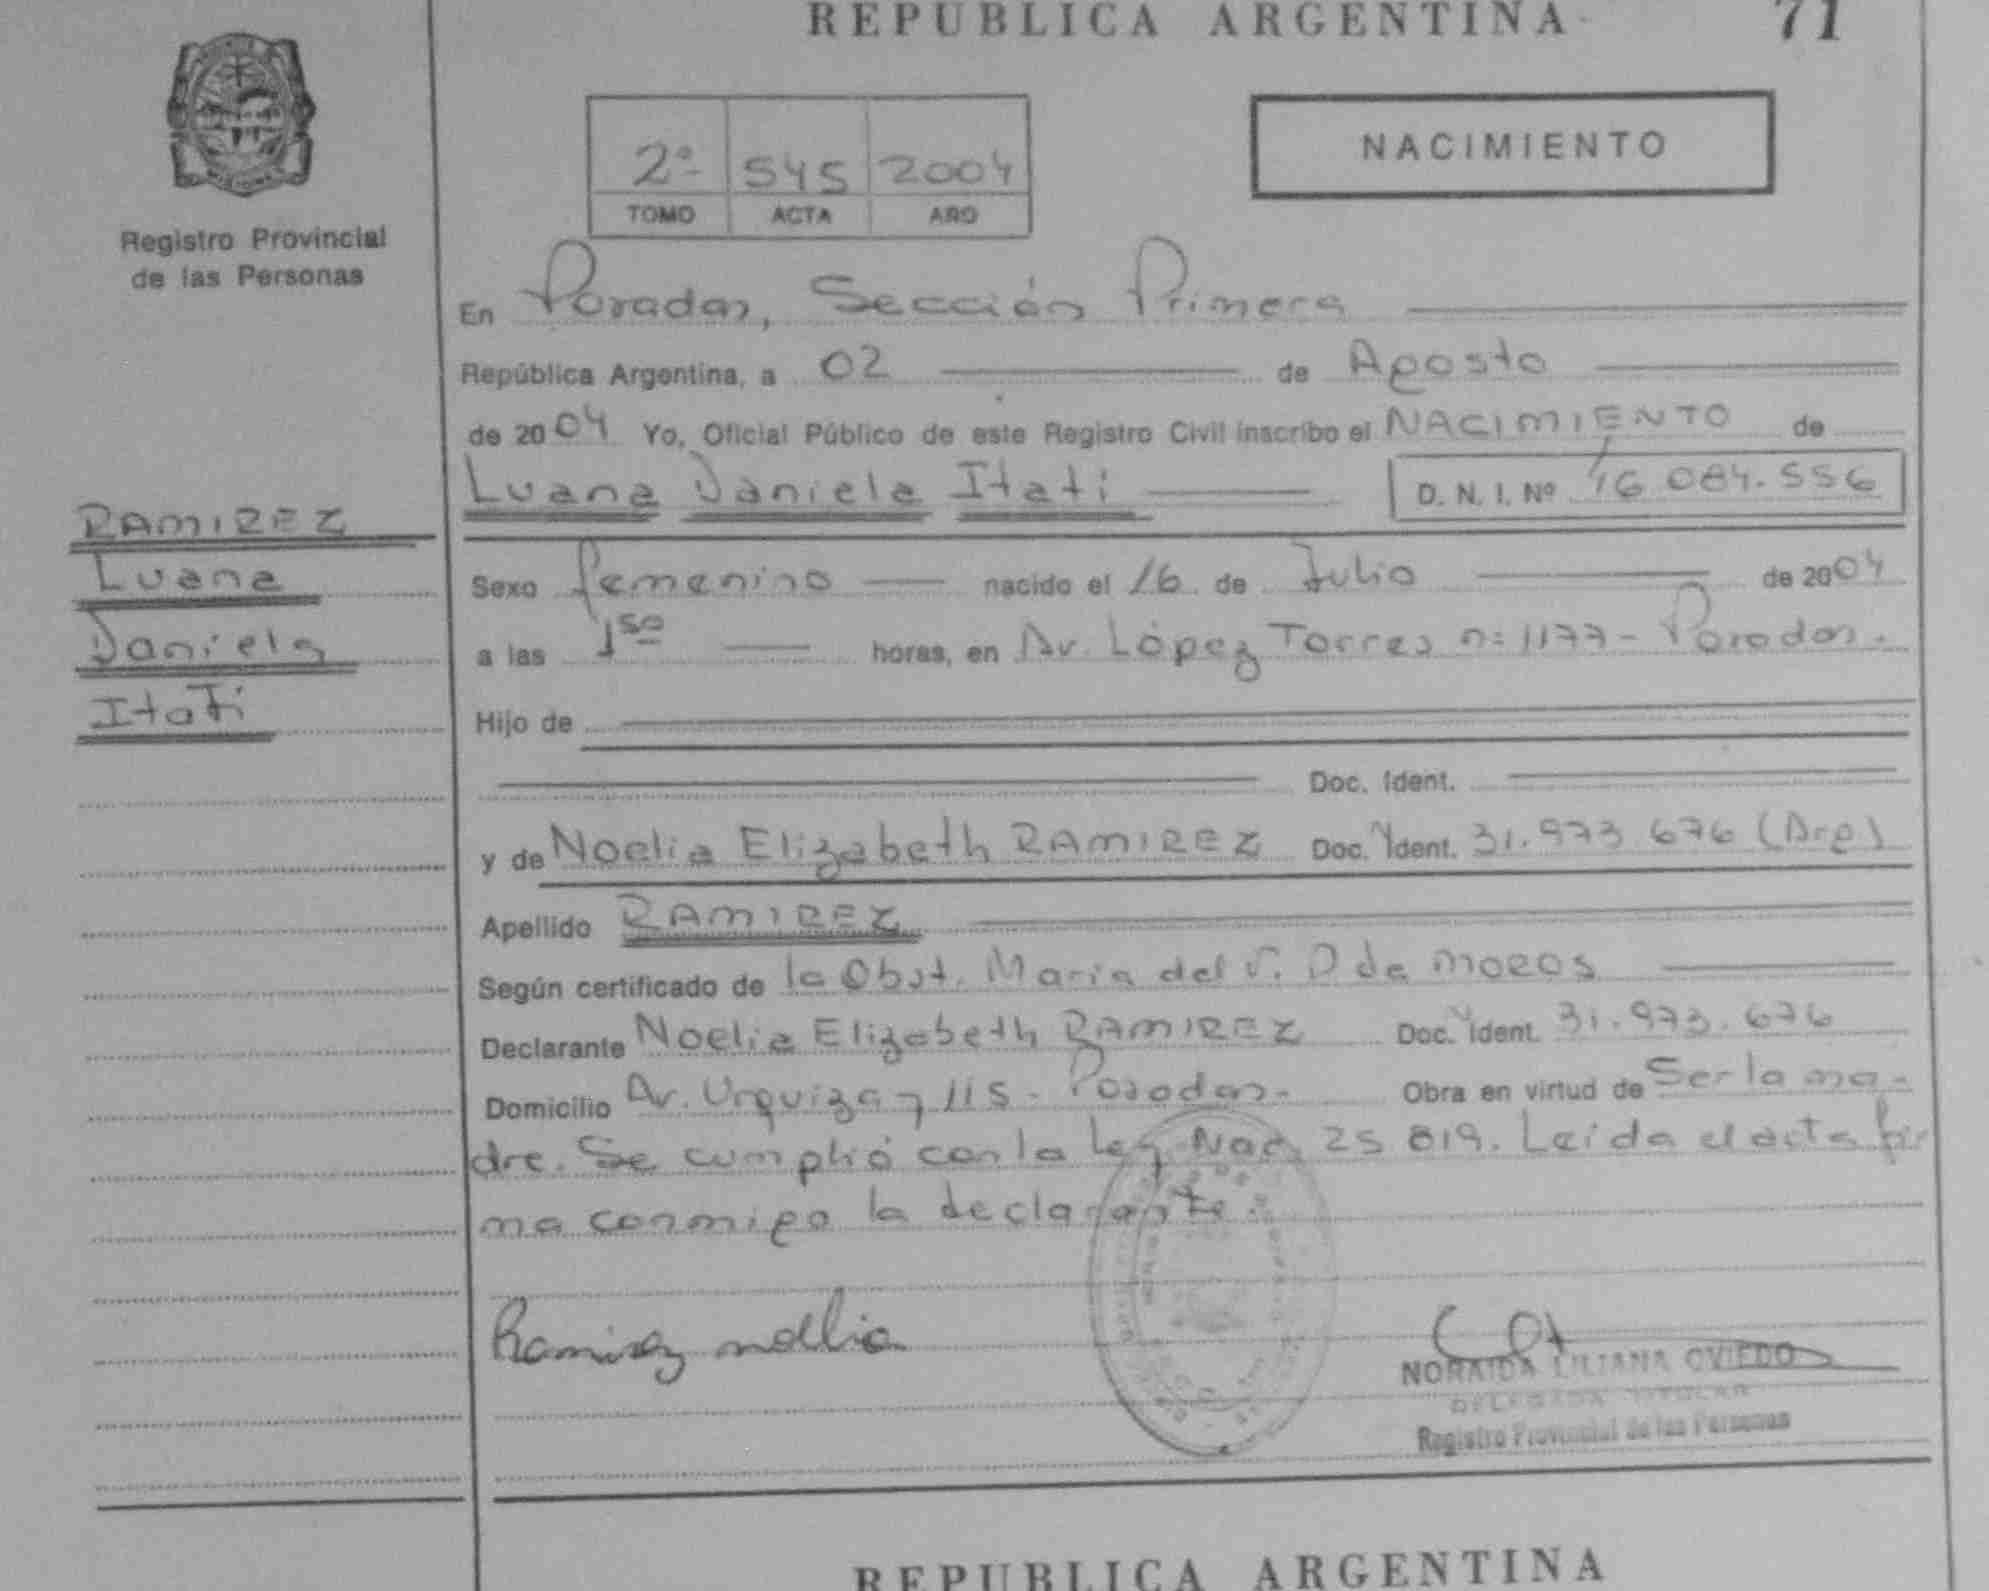 REPUBLICA ARGENTINA 71
Registro Provincial
de las Personas
2º 545 2004
TOMO ACTA AÑO
NACIMIENTO
En Posadas, Sección Primera
República Argentina, a 02 de Agosto
de 2004 Yo, Oficial Público de este Registro Civil inscribo el NACIMIENTO de
Luana Daniela Itati D. N. I. Nº 46.084.556
RAMIREZ
Luana
Daniela
Itati
Sexo femenino nacido el 16 de Julio de 2004
a las 1⁵⁰ horas, en Av. López Torres nº 1177 - Posadas.
Hijo de
Doc. Ident.
y de Noelia Elizabeth RAMIREZ Doc. Ident. 31.973.676 (Arg)
Apellido RAMIREZ
Según certificado de la Obst. Maria del V. D de MOROS
Declarante Noelia Elizabeth RAMIREZ Doc. Ident. 31.973.676
Domicilio Av. Urquiza y 115 - Posadas. Obra en virtud de Ser la ma-
dre. Se cumplió con la Ley Nac. 25.819. Leída el acta fir
ma conmigo la declarante.
Ramirez noelia
NORAIDA LILIANA OVIEDO
DELEGADA TITULAR
Registro Provincial de las Personas
REPUBLICA ARGENTINA